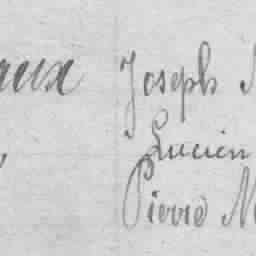 raux Joseph
Lucien
Pierre